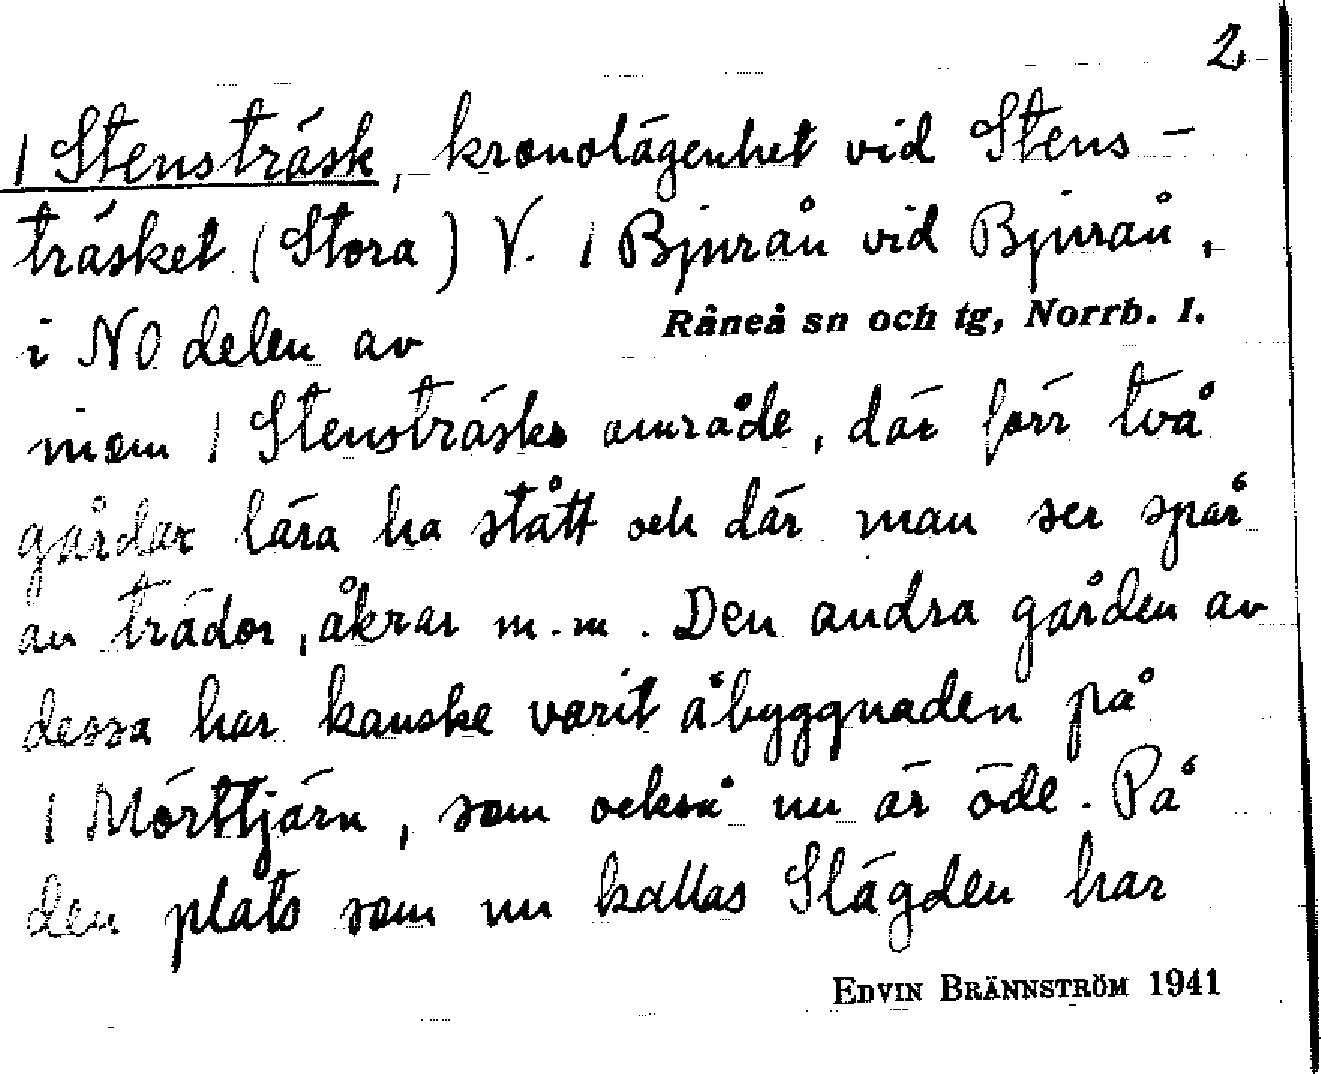 2
/ Stensträsk, kronolägenhet vid Stens-
träsket (Stora) V. / Bjurån vid Bjurån,
i NO delen av Råneå sn och tg, Norrb. l.
inom / Stensträsks område, där förr två
gårdar lära ha stått och där man ser spår
av trädor, åkrar m.m. Den andra gården av
dessa har kanske varit åbyggnaden på
/ Mörttjärn, som också nu är öde. På
den plats som nu kallas Slägden har
EDVIN BRÄNNSTRÖM 1941